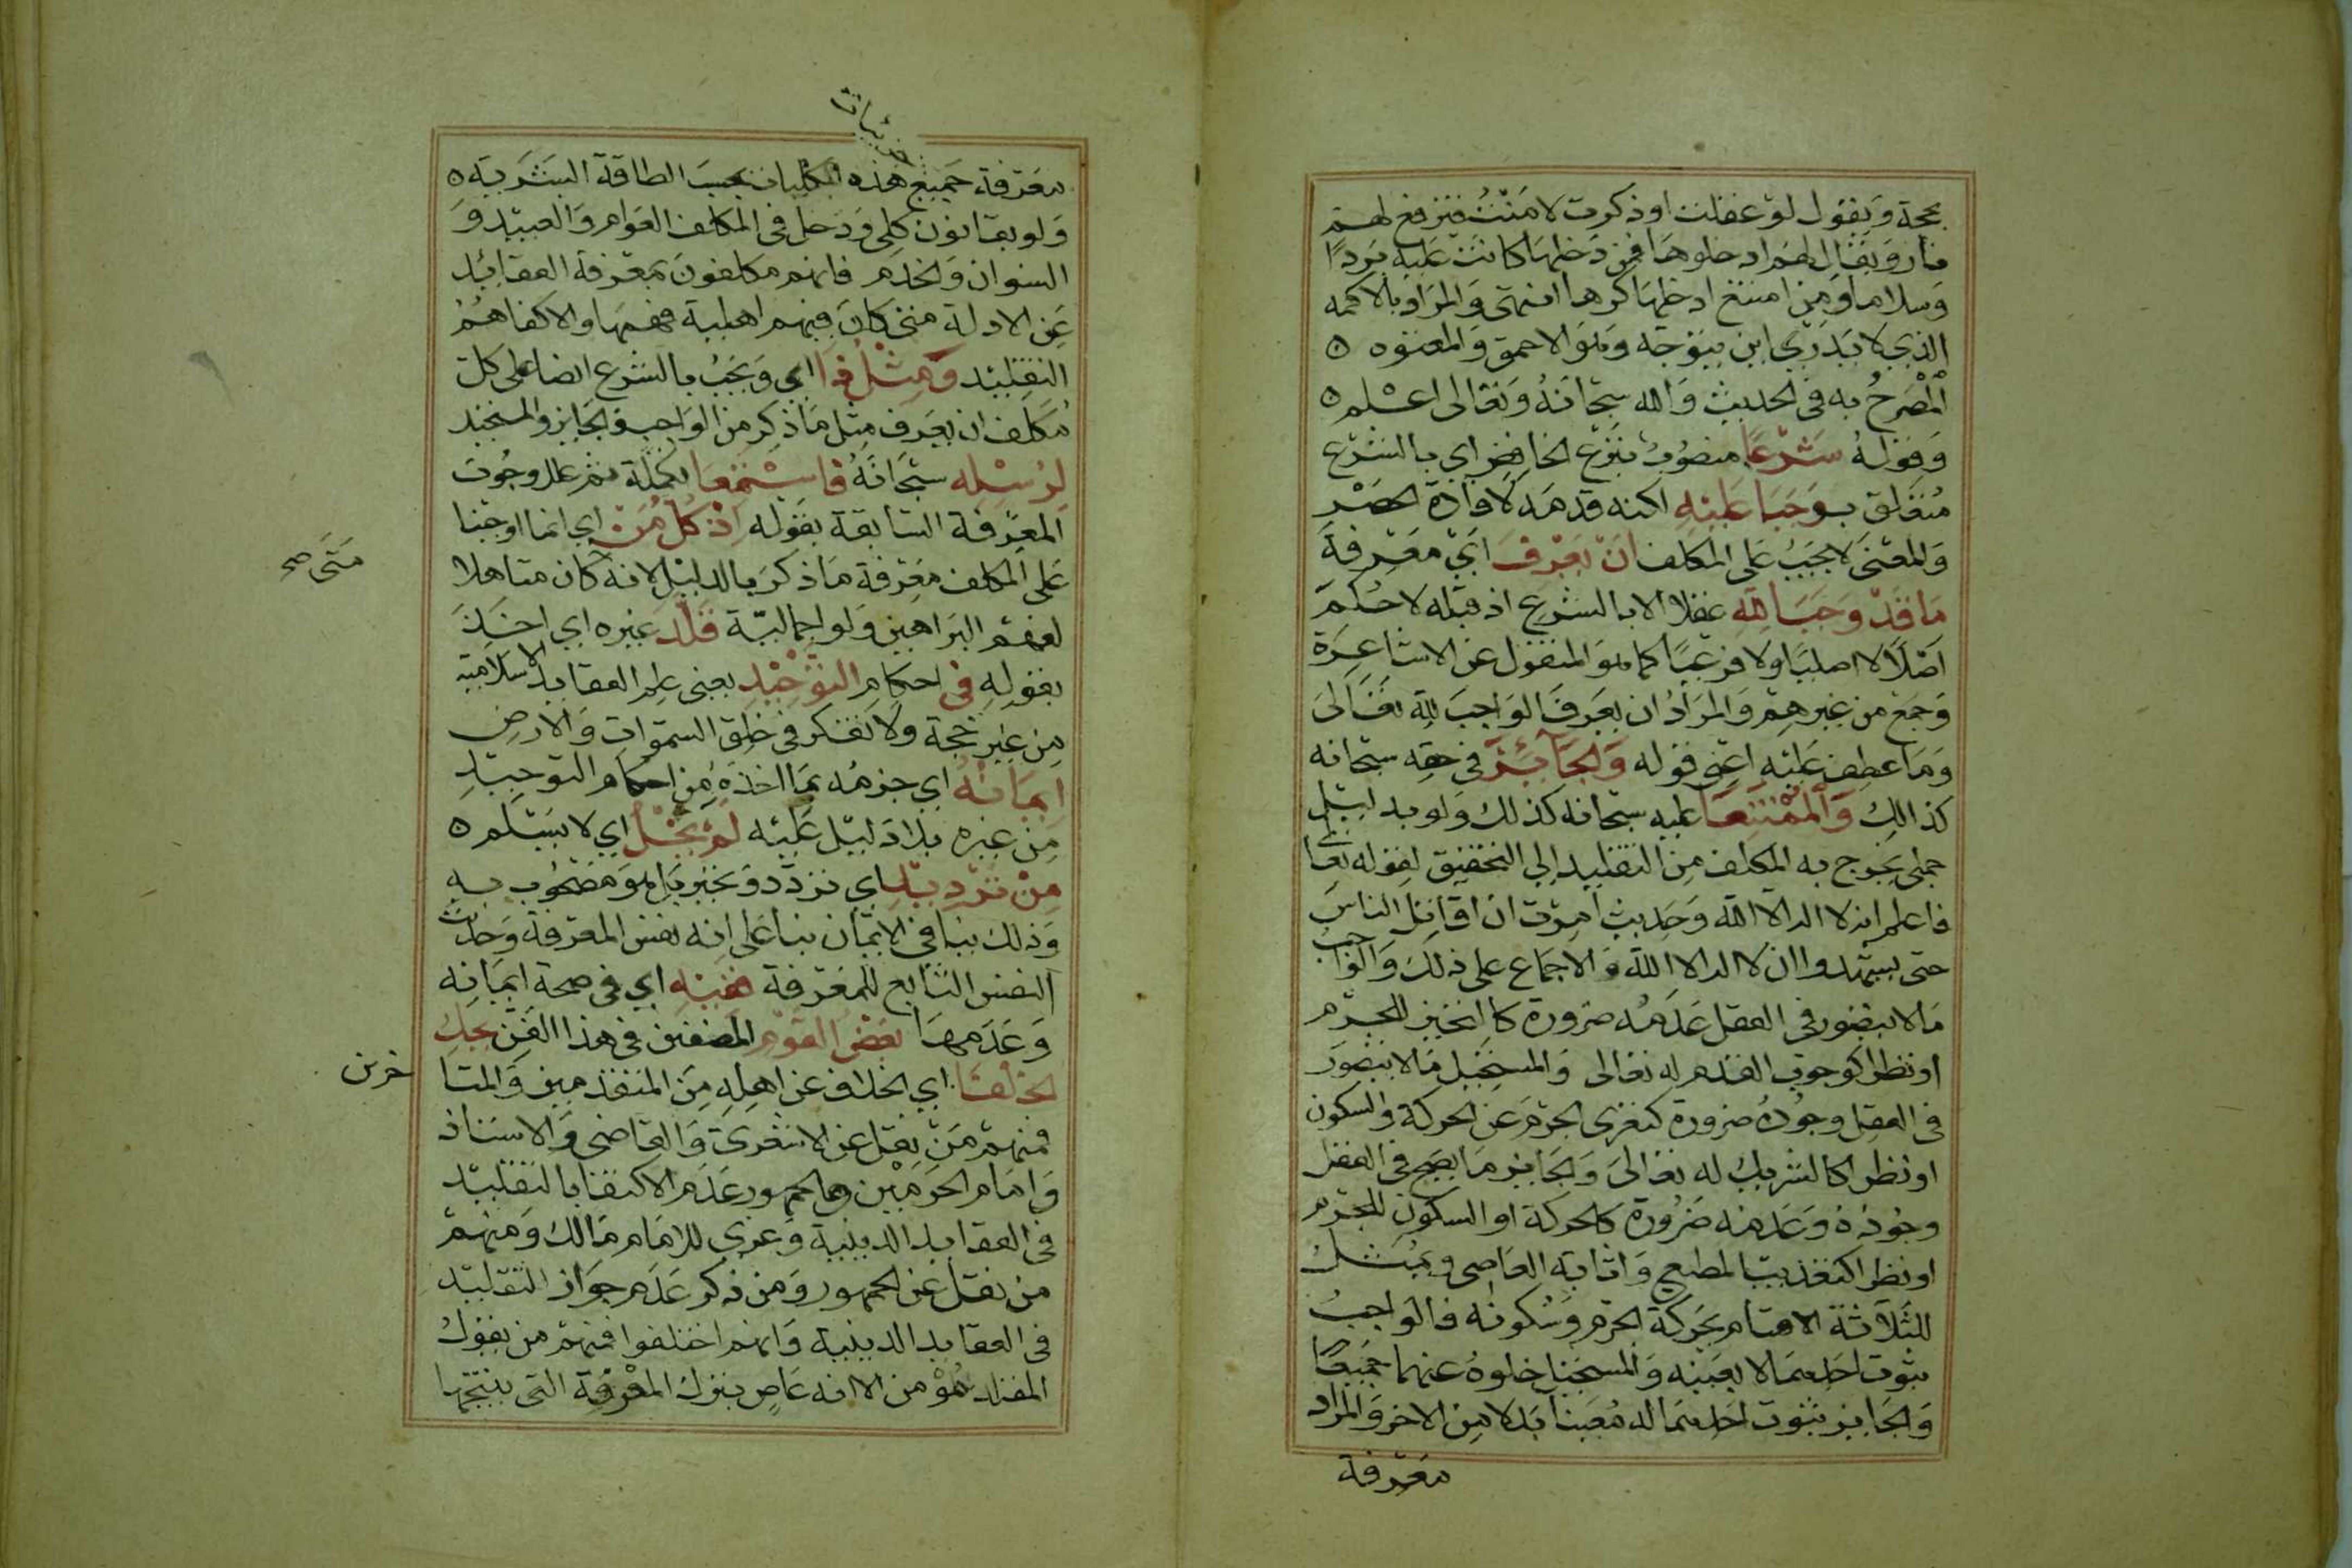 بحجة ويقول لو عقلت او ذكرت لامنت فترفع لهم
نار ويقال لهم ادخلوها فمن دخلها كانت عليه بردا
وسلاما ومن امتنع ادخلها كرها انتهى والمراد بالاكمه
الذي لا يدري اين يتوجه وهو الاحمق والمعتوه ه
المصرح به في الحديث والله سبحانه وتعالى اعلم ه
وقوله شرعا منصوب بنزع الخافض اي بالشرع
متعلق بوجبا عليه لكنه قدمه لافادة الحصر
والمعنى لا يجب على المكلف ان يعرف اي معرفة
ما قد وجبا لله عقلا الا بالشرع اذ قبله لا حكم
اصلا لا اصليا ولا فرعيا كما هو المنقول عن الاشاعرة
وجمع من غيرهم والمراد ان يعرف الواجب لله تعالى
وما عطف عليه اعني قوله والجائز في حقه سبحانه
كذالك والممتنعا عليه سبحانه كذلك ولو بدليل
جملي يخرج به المكلف من التقليد الي التحقيق لقوله تعا
فاعلم انه لا اله الا الله وحديث امرت ان اقاتل الناس
حتى يشهدوا ان لا اله الا الله والاجماع على ذلك والواجب
ما لا يتصور في العقل عدمه ضرورة كالتحيز للجرم
او نظرا كوجوب القدم له تعالى والمستحيل ما لا يتصور
في العقل وجوده ضرورة كتعري الجرم عن الحركة والسكون
او نظرا كالشريك له تعالى والجايز ما يصح في العقل
وجوده وعدمه ضرورة كالحركة او السكون للجرم
او نظرا كتعذيب المطيع واثابة العاصي ويمثل
للثلاثة الاقسام بحركة الجرم وسكونه فالواجب
ثبوت احدهما لا بعينه والمستحيل خلوه عنهما جميعا
والجايز ثبوت احدهما له معينا بدلا من الاخر والمراد
معرفة
جزئيات
معرفة جميع هذه الكليات بحسب الطاقة البشرية ه
ولو بقانون كلي ودخل في المكلف العوام والعبيد و
النسوان والخدم فانهم مكلفون بمعرفة العقائد
عن الادلة متى كان فيهم اهلية فهمها والا كفاهم
التقليد ومثل ذا اي ويجب بالشرع ايضا على كل
مكلف ان يعرف مثل ما ذكر من الواجب والجايز والمستحيل
لرسله سبحانه فاستمعا تكملة ثم علل وجوب
المعرفة السابقة بقوله اذ كل من اي انما اوجبنا
على المكلف معرفة ما ذكر بالدليل لانه كان متاهلا
متى صح
لفهم البراهين ولو اجمالية قلد غيره اي اخذ
بقوله في احكام التوحيد يعني علم العقايد الاسلامية
من غير حجة ولا تفكر في خلق السموات والارض
ايمانه اي جزمه بما اخذه من احكام التوحيد
من غيره بلا دليل عليه لم يخل اي لا يسلم ه
من ترديد اي تردد وتحير بل هو مصحوب به
وذلك ينافي الايمان بنا على انه نفس المعرفة وحديث
النفس التابع للمعرفة ففيه اي في صحة ايمانه
وعدمها بعض القوم المصنفين في هذا الفن يحك
الخلفا اي الخلاف عن اهله من المتقدمين والمتا
خرين
فمنهم من نقل عن الاشعري والقاضي والاستاذ
وامام الحرمين والجمهور عدم الاكتفا بالتقليد
في العقايد الدينية وعزي للامام مالك ومنهم
من نقل عن الجمهور ومن ذكر عدم جواز التقليد
في العقايد الدينية وانهم اختلفوا فمنهم من يقول
المقلد مؤمن الا انه عاص بترك المعرفة التي ينتجها